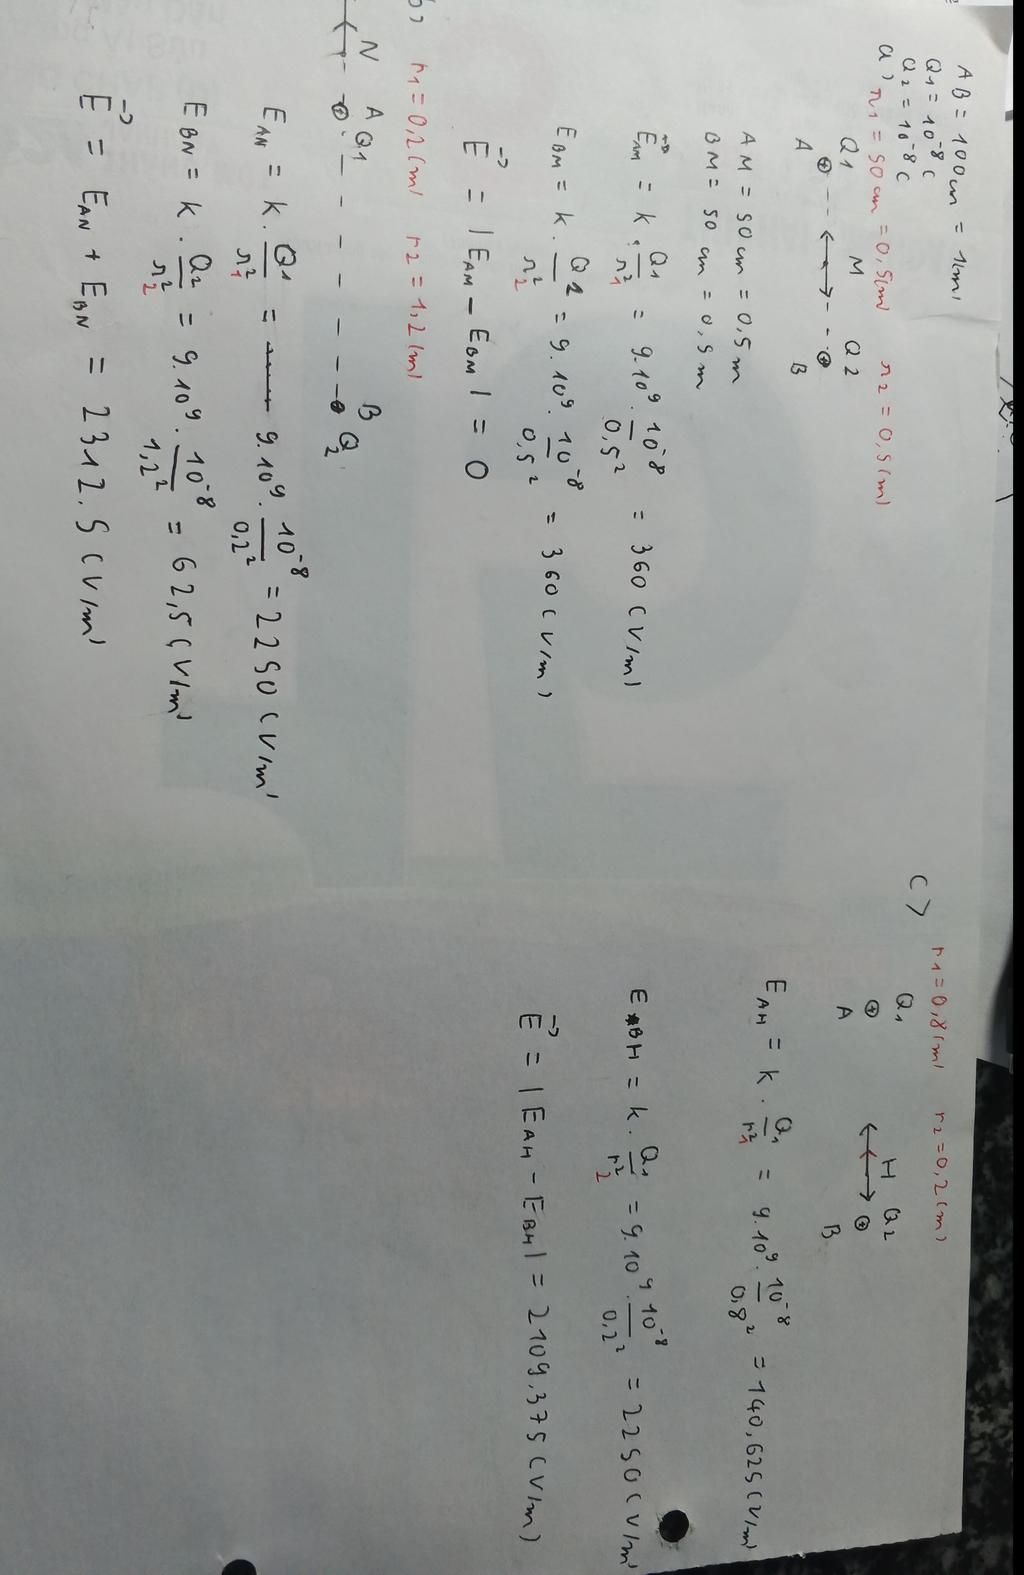 AB = 100 cm = 1(m)
Q1 = 10^-8 C
Q2 = 10^-8 C
a) r1 = 50 cm = 0,5(m) r2 = 0,5(m)
Q1 M Q2
A B
AM = 50 cm = 0,5 m
BM = 50 cm = 0,5 m
E_AM = k . Q1/r1^2 = 9.10^9 . 10^-8/0,5^2 = 360 (V/m)
E_BM = k . Q2/r2^2 = 9.10^9 . 10^-8/0,5^2 = 360 (V/m)
E→ = |E_AM - E_BM| = 0
b) r1 = 0,2(m) r2 = 1,2(m)
N A Q1 B Q2
E_AN = k . Q1/r1^2 = 9.10^9 . 10^-8/0,2^2 = 2250 (V/m)
E_BN = k . Q2/r2^2 = 9.10^9 . 10^-8/1,2^2 = 62,5 (V/m)
E→ = E_AN + E_BN = 2312.5 (V/m)
c) r1 = 0,8(m) r2 = 0,2(m)
Q1 H Q2
A B
E_AH = k . Q1/r1^2 = 9.10^9 . 10^-8/0,8^2 = 140,625 (V/m)
E_BH = k . Q1/r2^2 = 9.10^9 . 10^-8/0,2^2 = 2250 (V/m)
E→ = |E_AH - E_BH| = 2109,375 (V/m)